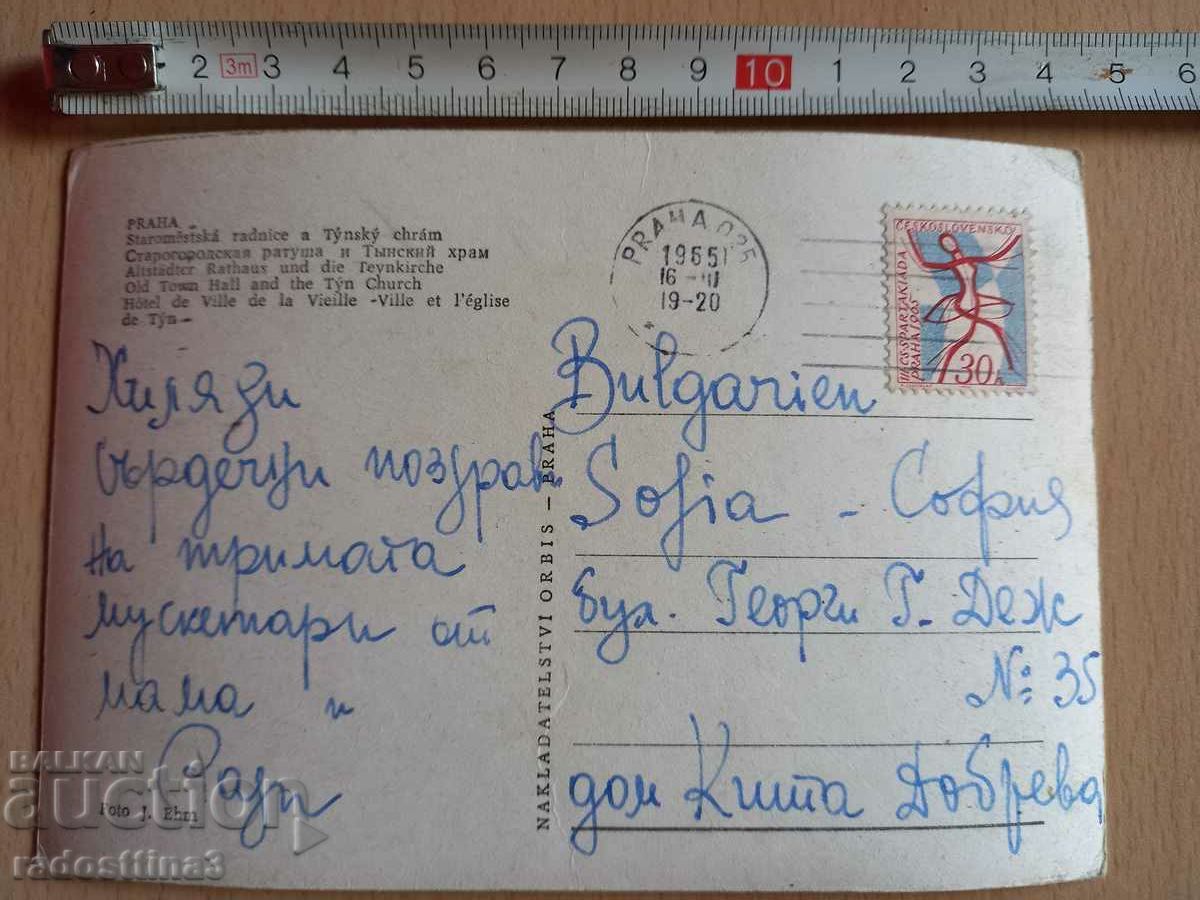 2 3m 3 4 5 6 7 8 9 10 1 2 3 4 5 6
PRAHA
Staroměstská radnice a Týnský chrám
Старогородская ратуша и Тынский храм
Altstädter Rathaus und die Teynkirche
Old Town Hall and the Týn Church
Hôtel de Ville de la Vieille -Ville et l'église
de Týn
PRAHA 025
1965
16 -III
19-20
ČESKOSLOVENSKO
III.CS.SPARTAKIÁDA
PRAHA 1965
30h
Хиляди
сърдечни поздрави
на тримата
мускетари от
мама и
NAKLADATELSTVÍ ORBIS — PRAHA
Bulgarien
Sofia - София
бул. Георги Г. Деж
№ 35
дом Добрева
Foto J. Ehm
BALKAN
auction
radosttina3